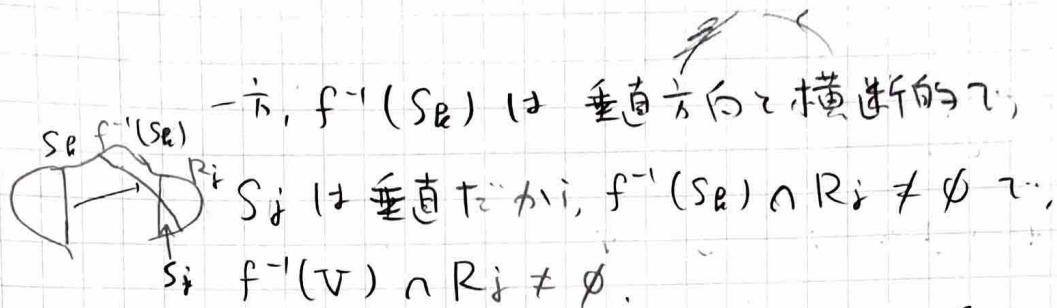 一方, f⁻¹(S_k) は 垂直方向と横断的で,
S_k f⁻¹(S_k)
R_j
S_j は垂直だから, f⁻¹(S_k) ∩ R_j ≠ φ で,
S_j
f⁻¹(V) ∩ R_j ≠ φ.